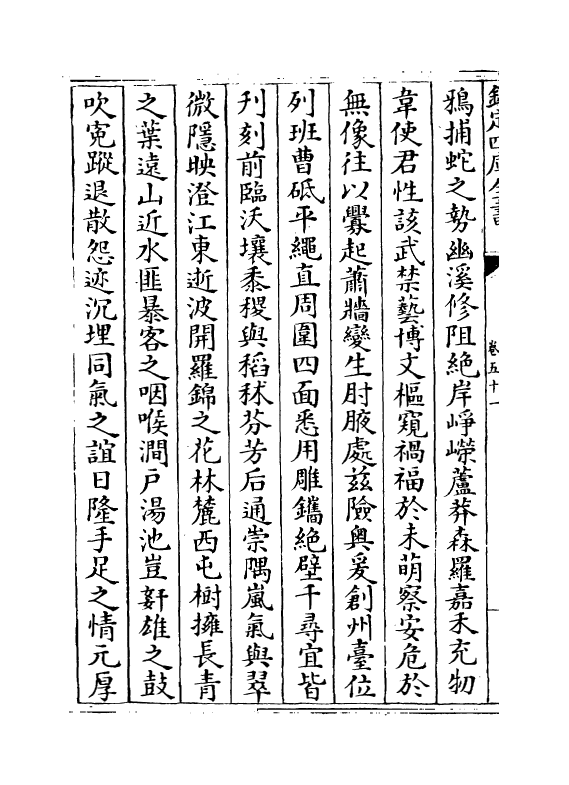 欽定四庫全書
卷五十一
鴉捕蛇之勢幽溪修阻絶岸崢嶸蘆莽森羅嘉禾充牣
韋使君性該武禁藝博文樞窺禍福於未萌察安危於
無像往以釁起蕭牆變生肘腋處兹險奥爰創州臺位
列班曹砥平繩直周圍四面悉用雕鐫絶壁千尋宜皆
刋刻前臨沃壤黍稷與稻秫芬芳后通崇隅嵐氣與翠
微隱映澄江東逝波開羅錦之花林麓西屯樹擁長青
之葉遠山近水匪暴客之咽喉澗户湯池豈姧雄之鼓
吹寃蹤退散怨迹沉埋同氣之誼日隆手足之情元厚